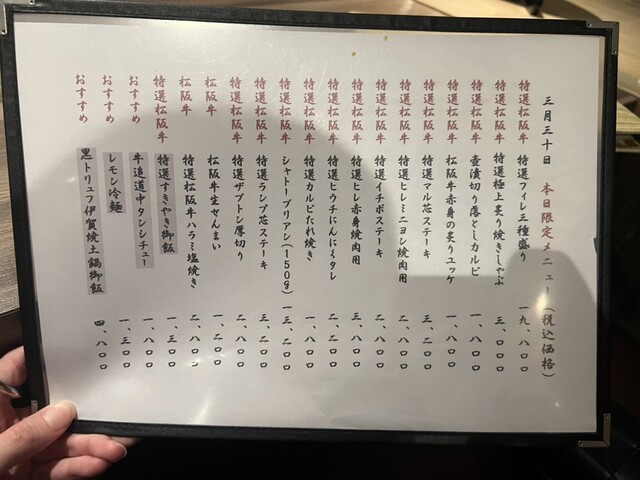 三月三十日 本日限定メニュー（税込価格）
特選松阪牛 特選フィレ三種盛り 一九、八〇〇
特選松阪牛 特選極上炙り焼きしゃぶ 三、〇〇〇
特選松阪牛 壺漬切り落としカルビ 一、八〇〇
特選松阪牛 松阪牛赤身の炙りユッケ 一、八〇〇
特選松阪牛 特選マル芯ステーキ 三、二〇〇
特選松阪牛 特選ヒレミニヨン焼肉用 二、八〇〇
特選松阪牛 特選イチボステーキ 三、二〇〇
特選松阪牛 特選ヒレ赤身焼肉用 三、八〇〇
特選松阪牛 特選ヒウチにんにくタレ 二、八〇〇
特選松阪牛 特選カルビたれ焼き 一、八〇〇
特選松阪牛 シャトーブリアン（150g） 一三、二〇〇
特選松阪牛 特選ランプ芯ステーキ 三、二〇〇
特選松阪牛 特選ザブトン厚切り 二、八〇〇
松阪牛 松阪牛生せんまい 一、二〇〇
松阪牛 特選松阪牛ハラミ塩焼き 二、八〇〇
特選松阪牛 特選すきやき御飯 一、三〇〇
おすすめ 牛追道中タンシチュー 一、八〇〇
おすすめ レモン冷麺 一、三〇〇
おすすめ 黒トリュフ伊賀焼土鍋御飯 四、八〇〇